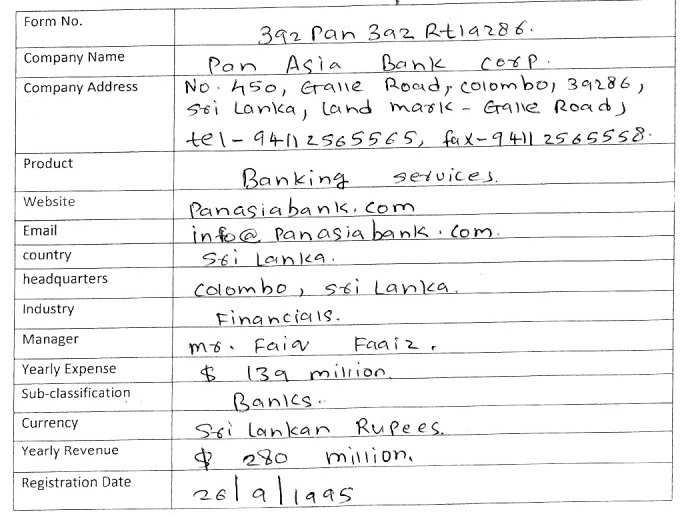 Form No. 392 Pan 392 Rt19286.
Company Name Pan Asia Bank Corp.
Company Address No. 450, Galle Road, Colombo, 39286,
Sri Lanka, land mark - Galle Road,
tel - 94112565565, fax - 94112565558.
Product Banking services.
Website Panasiabank.com
Email info@panasiabank.com.
country Sri Lanka.
headquarters Colombo, Sri Lanka.
Industry Financials.
Manager mr. Faiq Faaiz.
Yearly Expense $ 139 million.
Sub-classification Banks.
Currency Sri Lankan Rupees.
Yearly Revenue $ 280 million.
Registration Date 26/9/1995